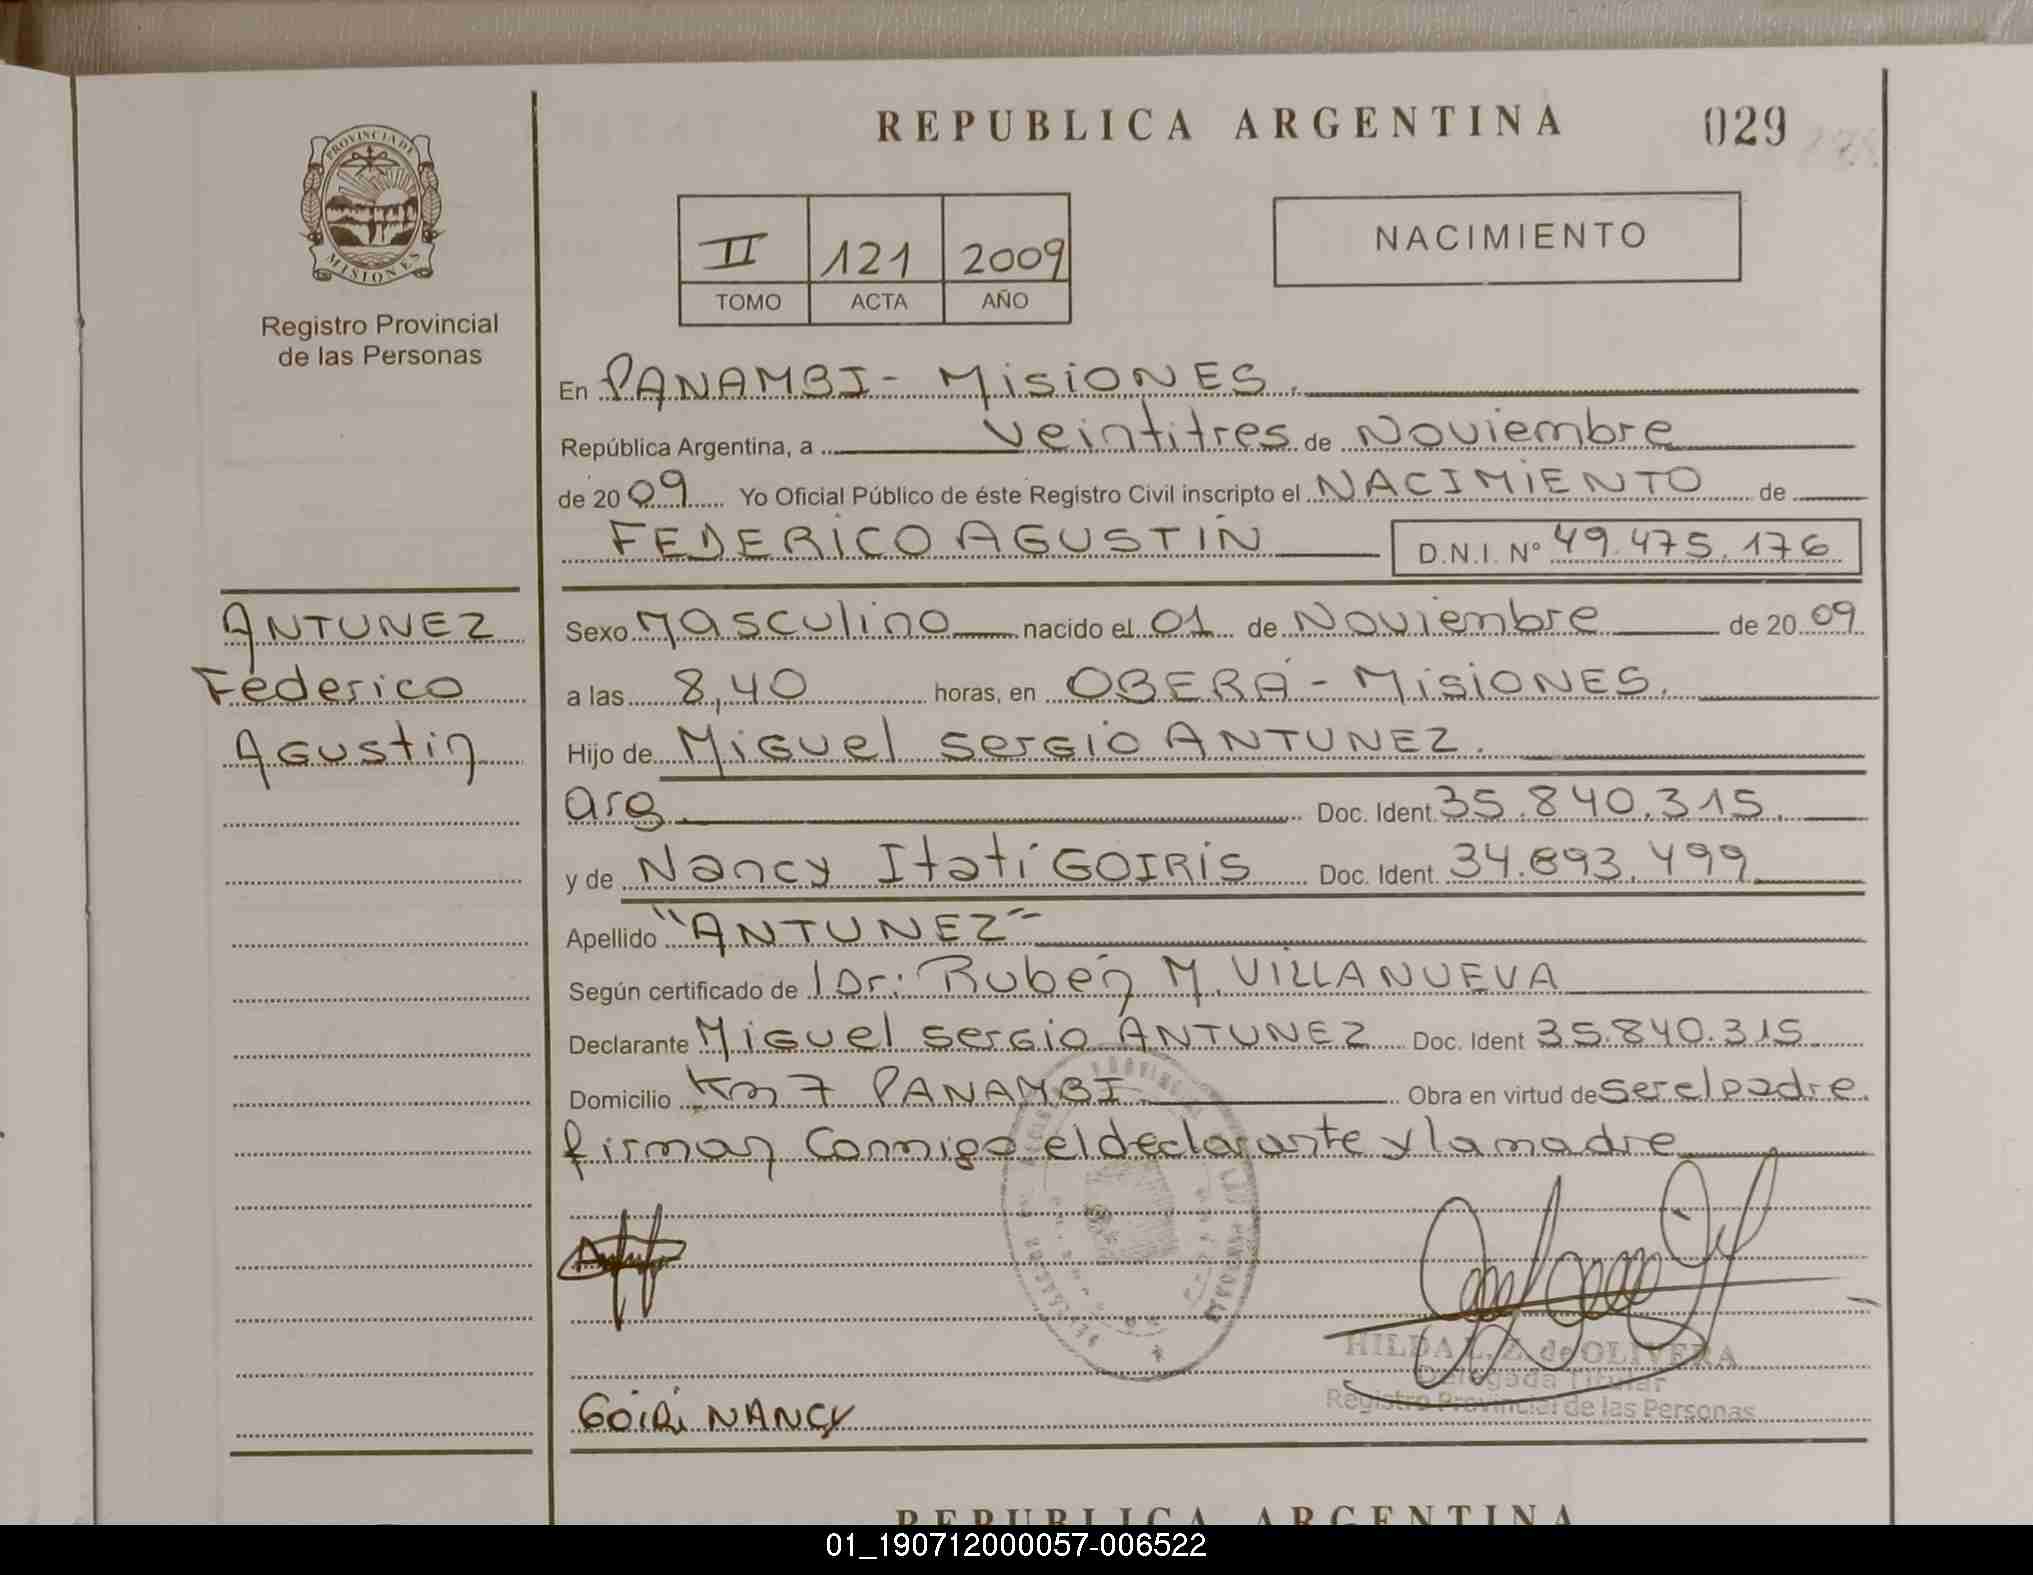 REPUBLICA ARGENTINA
029
PROVINCIA DE
MISIONES
Registro Provincial
de las Personas
II 121 2009
TOMO ACTA AÑO
NACIMIENTO
En PANAMBI - MISIONES.
República Argentina, a veintitres de Noviembre
de 2009 Yo Oficial Público de éste Registro Civil inscripto el NACIMIENTO de
FEDERICO AGUSTIN D.N.I. Nº 49.475.176
ANTUNEZ
Federico
Agustin
Sexo Masculino nacido el 01 de Noviembre de 2009
a las 8,40 horas, en OBERÁ - MISIONES.
Hijo de Miguel Sergio ANTUNEZ.
arg Doc. Ident. 35.840.315.
y de Nancy Itatí GOIRIS Doc. Ident. 34.893.499
Apellido "ANTUNEZ"
Según certificado de Dr: Rubén M. VILLANUEVA
Declarante Miguel Sergio ANTUNEZ Doc. Ident 35.840.315
Domicilio Km 7 PANAMBI Obra en virtud de ser el padre.
firman conmigo el declarante y la madre
HILDA L. Z. de OLIVERA
Delegada Titular
Registro Provincial de las Personas
GOIRI NANCY
REPUBLICA ARGENTINA
01_190712000057-006522